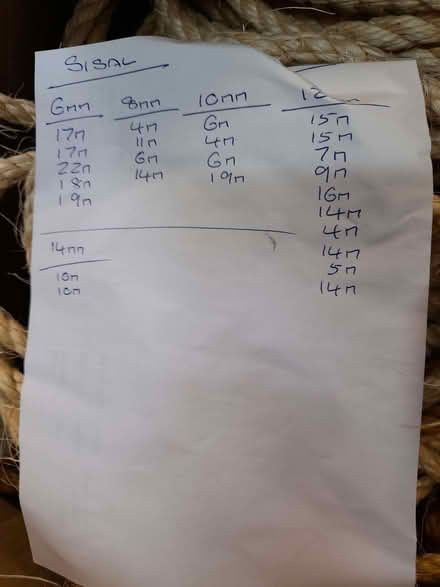 SISAL
6mm 8mm 10mm 12
17m 4m 6m 15m
17m 11m 4m 15m
22m 6m 6m 7m
18m 14m 19m 9m
19m 16m
14m
4m
14mm 14m
10m 5m
10m 14m